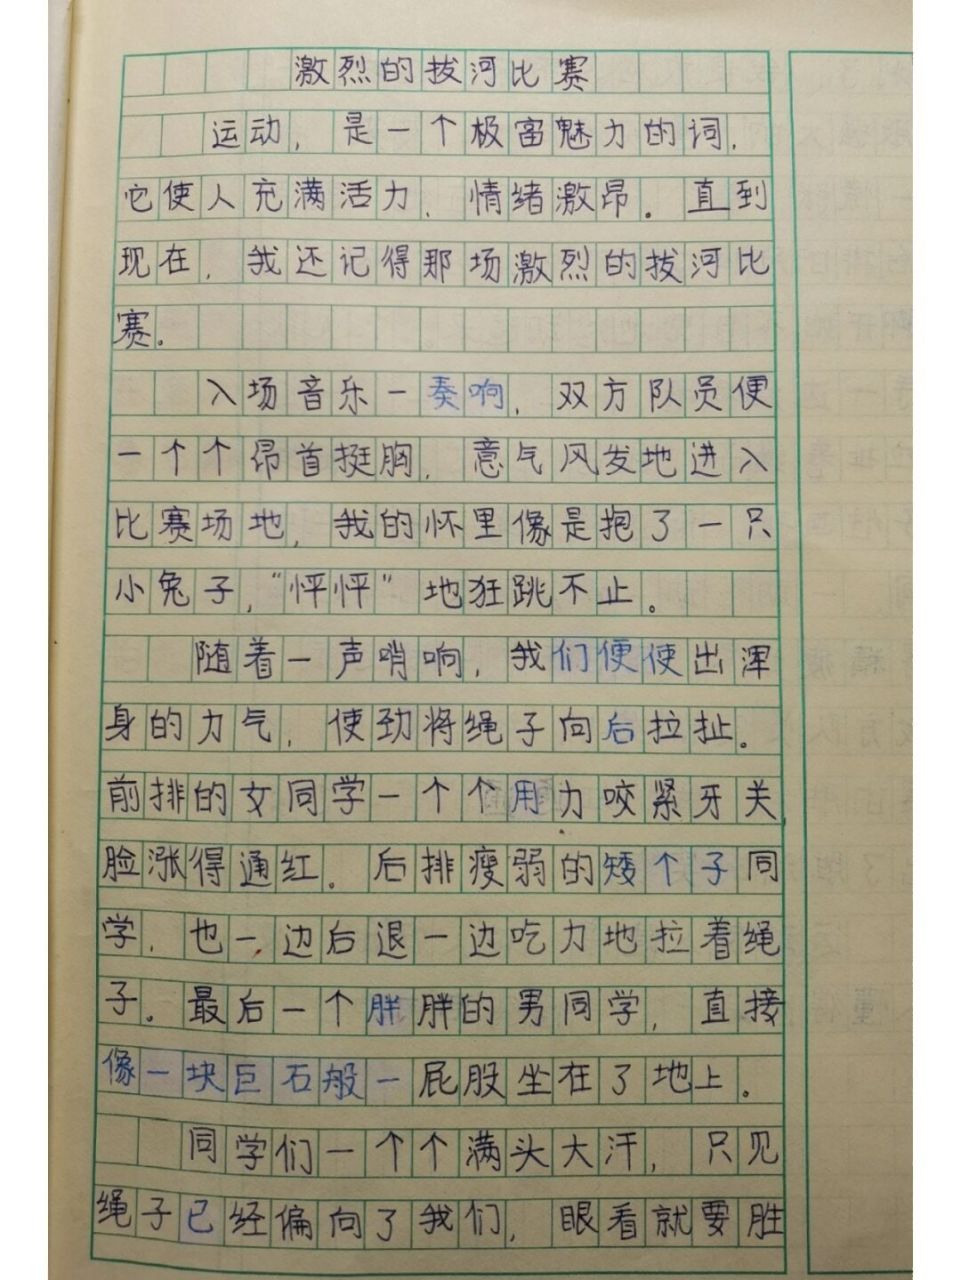 激烈的拔河比赛
运动，是一个极富魅力的词，
它使人充满活力、情绪激昂。直到
现在，我还记得那场激烈的拔河比
赛。
入场音乐一奏响，双方队员便
一个个昂首挺胸，意气风发地进入
比赛场地，我的怀里像是抱了一只
小兔子，“怦怦”地狂跳不止。
随着一声哨响，我们便使出浑
身的力气，使劲将绳子向后拉扯。
前排的女同学一个个用力咬紧牙关
脸涨得通红。后排瘦弱的矮个子同
学，也一边后退一边吃力地拉着绳
子。最后一个胖胖的男同学，直接
像一块巨石般一屁股坐在了地上。
同学们一个个满头大汗，只见
绳子已经偏向了我们，眼看就要胜